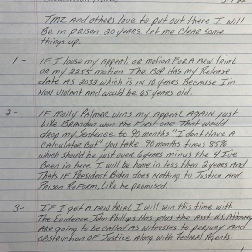 TMZ and others love to put out there I will
Be in prison 20 years let me clear some
things up.
1- If I lose my appeal or motion for a new trial
or my 2255 motion The BOP has my Release
date as 2037 which is in 16 years because I'm
not violent and would be 65 years old.
2- If Molly Palmer wins my appeal AGAIN just
like Brandon won the first one That would
drop my sentence to 90 months "I don't have a
calculator But" you take 90 months times 85%
what should be just over 6 years minus the 4 I've
Been in here I will be home in less than 2 years and
that's if President Biden does nothing to Justice and
Prison Reform like he promised.
3- If I get a new trial I will win this time with
The Evidence John Phillips has plus the Asst. US Attorney
Are going to be called as witnesses to perjury and
obstruction of Justice Along with Federal Agents